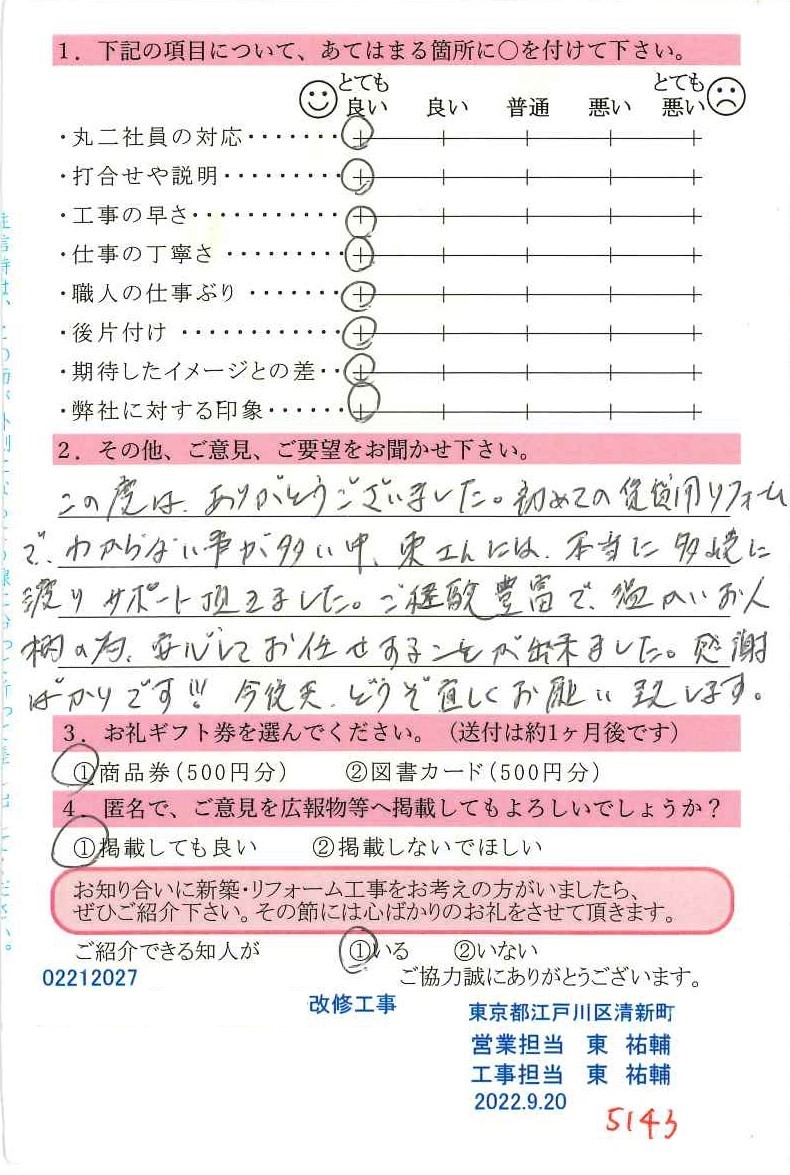 1．下記の項目について、あてはまる箇所に○を付けて下さい。
とても良い 良い 普通 悪い とても悪い
・丸二社員の対応・・・・・・・
・打合せや説明・・・・・・・・・
・工事の早さ・・・・・・・・・・・
・仕事の丁寧さ・・・・・・・・・
・職人の仕事ぶり・・・・・・・
・後片付け・・・・・・・・・・・・
・期待したイメージとの差・・
・弊社に対する印象・・・・・・
2．その他、ご意見、ご要望をお聞かせ下さい。
この度は、ありがとうございました。初めての賃貸用リフォーム
で、わからない事が多い中、東さんには、本当に多岐に
渡りサポート頂きました。ご経験豊富で、温かいお人
柄の為、安心してお任せすることが出来ました。感謝
ばかりです!! 今後共、どうぞ宜しくお願い致します。
3．お礼ギフト券を選んでください。（送付は約1ヶ月後です）
①商品券（500円分） ②図書カード（500円分）
4．匿名で、ご意見を広報物等へ掲載してもよろしいでしょうか？
①掲載しても良い ②掲載しないでほしい
お知り合いに新築・リフォーム工事をお考えの方がいましたら、
ぜひご紹介下さい。その節には心ばかりのお礼をさせて頂きます。
ご紹介できる知人が ①いる ②いない
02212027 ご協力誠にありがとうございます。
改修工事 東京都江戸川区清新町
営業担当 東 祐輔
工事担当 東 祐輔
2022.9.20
5143